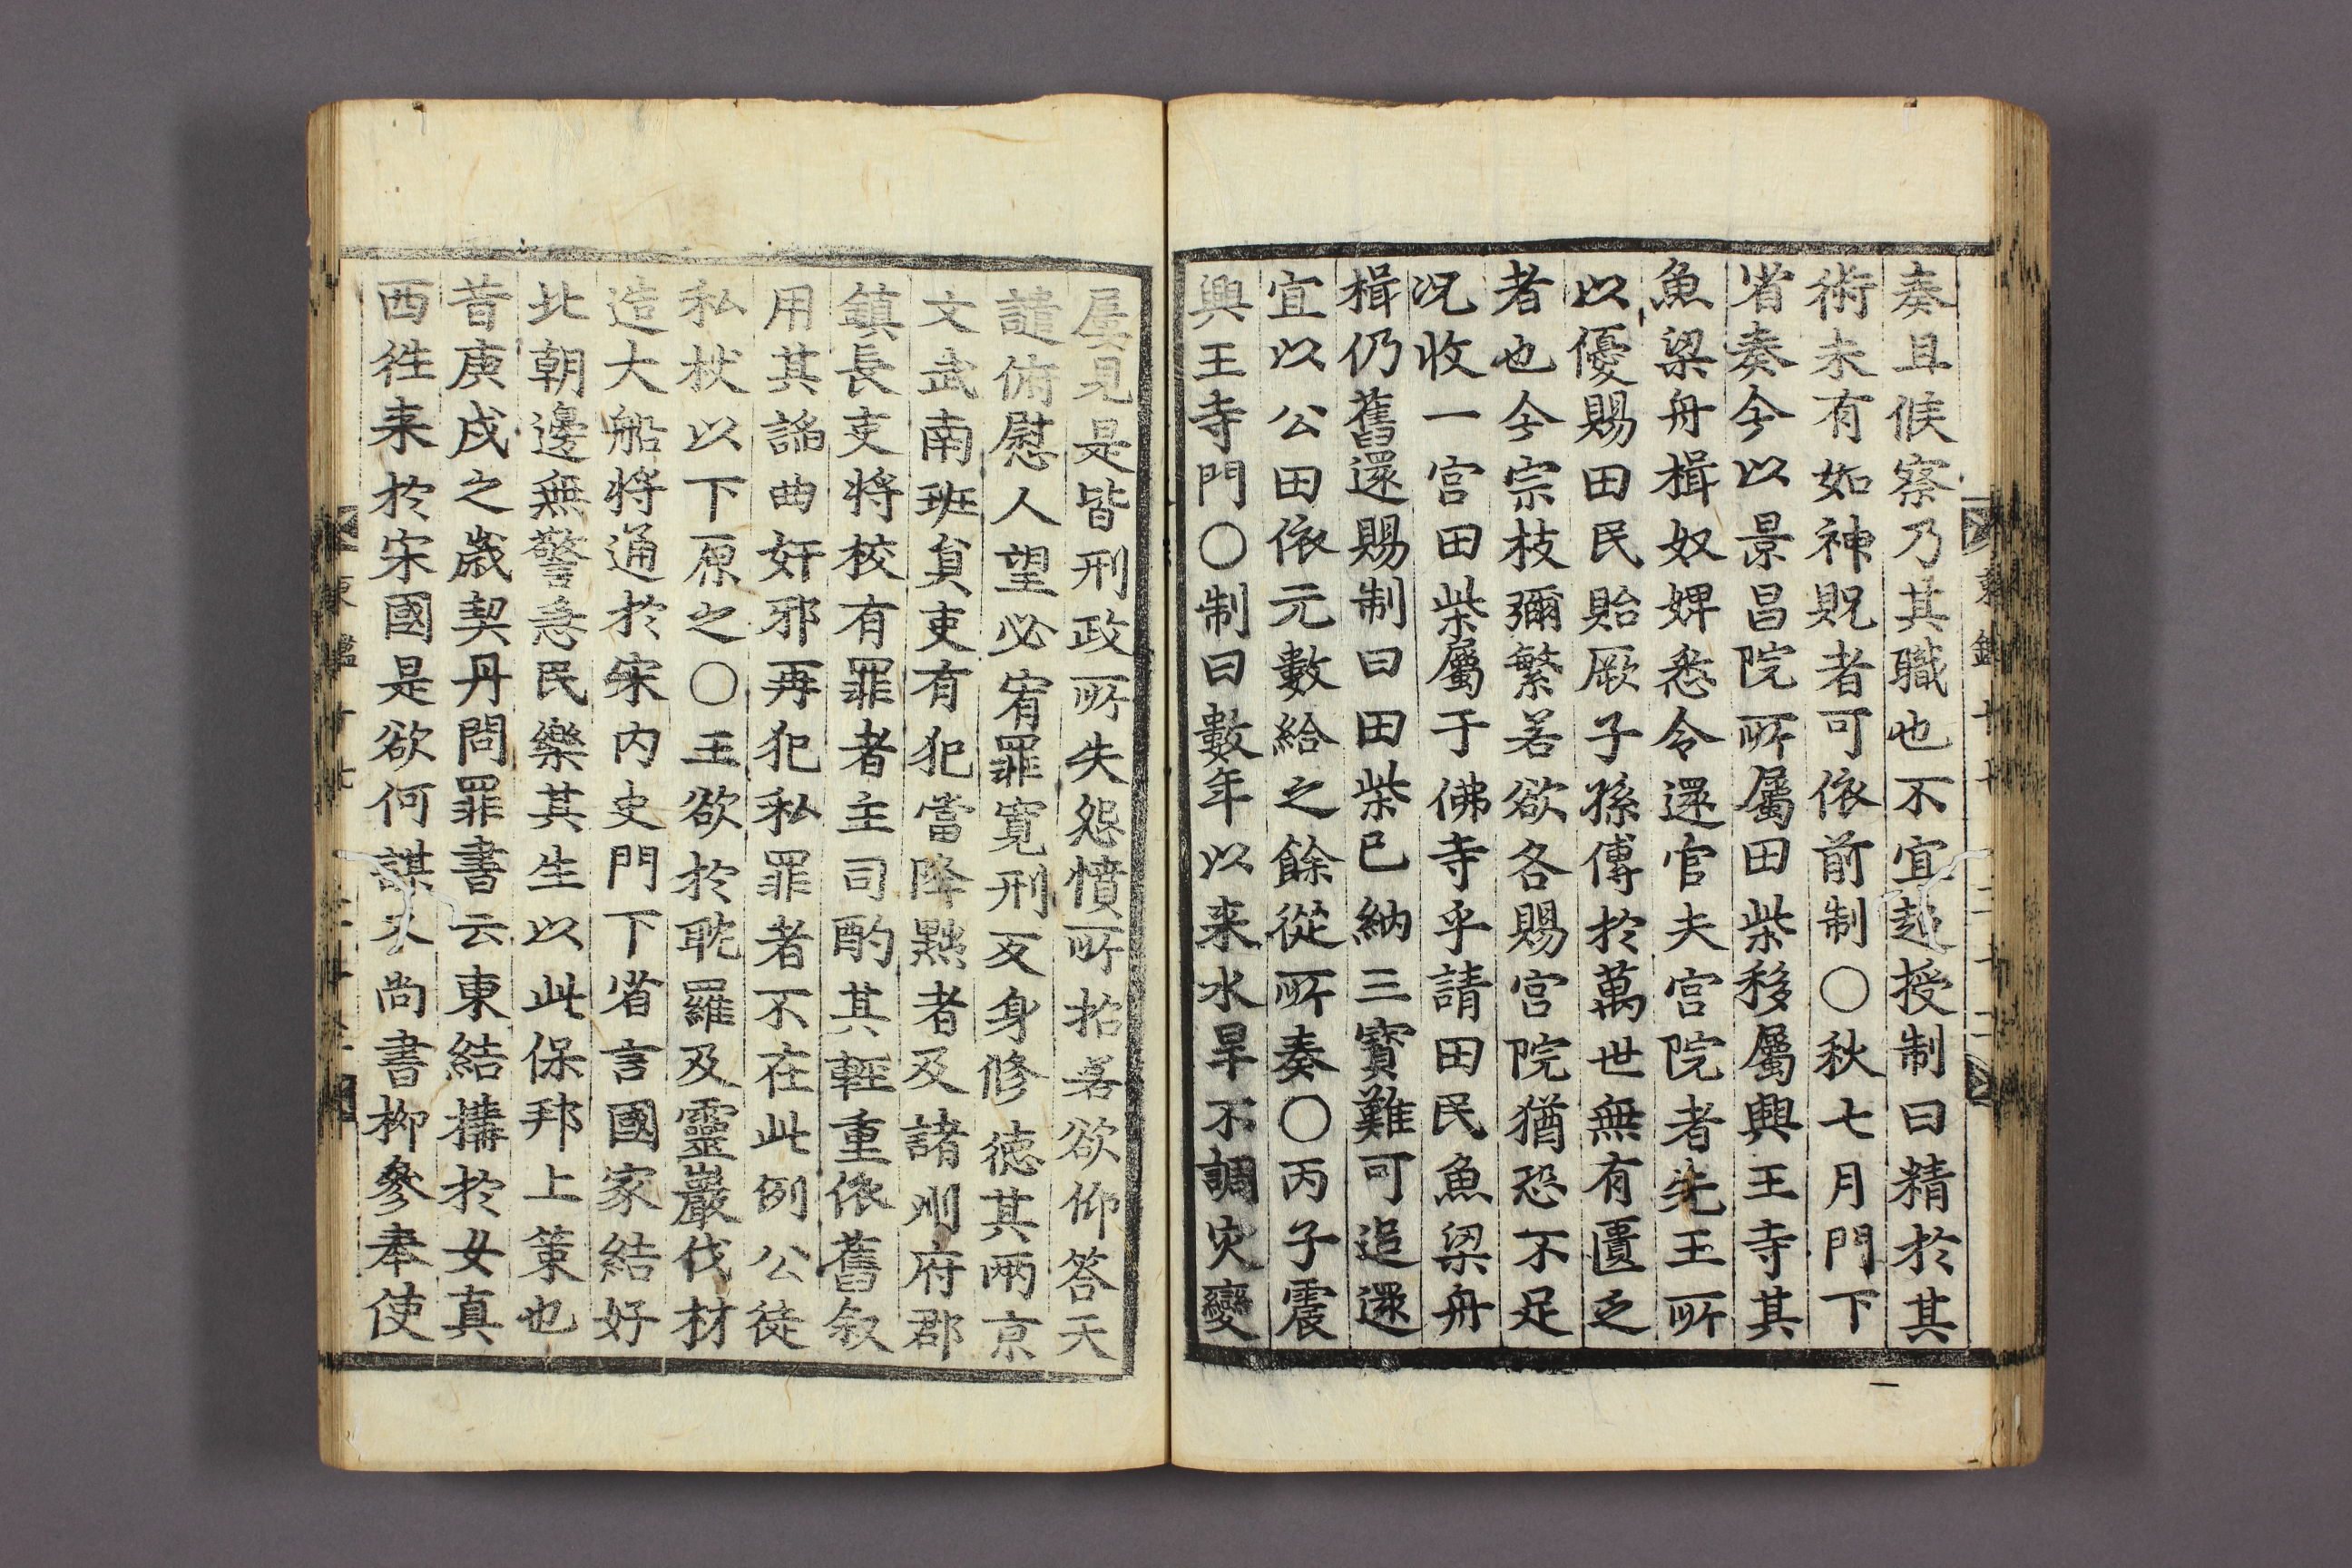 奏且候察乃其職也不宜超授制曰精於其
術未有如神貺者可依前制○秋七月門下
省奏今以景昌院所屬田柴移屬興王寺其
魚梁舟楫奴婢悉令還官夫宮院者先王所
以優賜田民貽厥子孫傳於萬世無有匱乏
者也今宗枝彌繁若欲各賜宮院猶恐不足
况收一宮田柴屬于佛寺乎請田民魚梁舟
楫仍舊還賜制曰田柴已納三寶難可追還
宜以公田依元數給之餘從所奏○丙子震
興王寺門○制曰數年以来水旱不調灾變
屢見是皆刑政所失怨憤所招若欲仰答天
譴俯慰人望必宥罪寬刑反身修德其兩京
文武南班負吏有犯當降黜者及諸州府郡
鎮長吏將校有罪者主司酌其輕重依舊叙
用其謟曲奸邪再犯私罪者不在此例公徒
私杖以下原之○王欲於耽羅及靈巖伐材
造大船將通於宋内史門下省言國家結好
北朝邊無警急民樂其生以此保邦上策也
昔庚戌之歲契丹問罪書云東結搆於女真
西徃来於宋國是欲何謀又尚書柳參奉使
東鑑十七